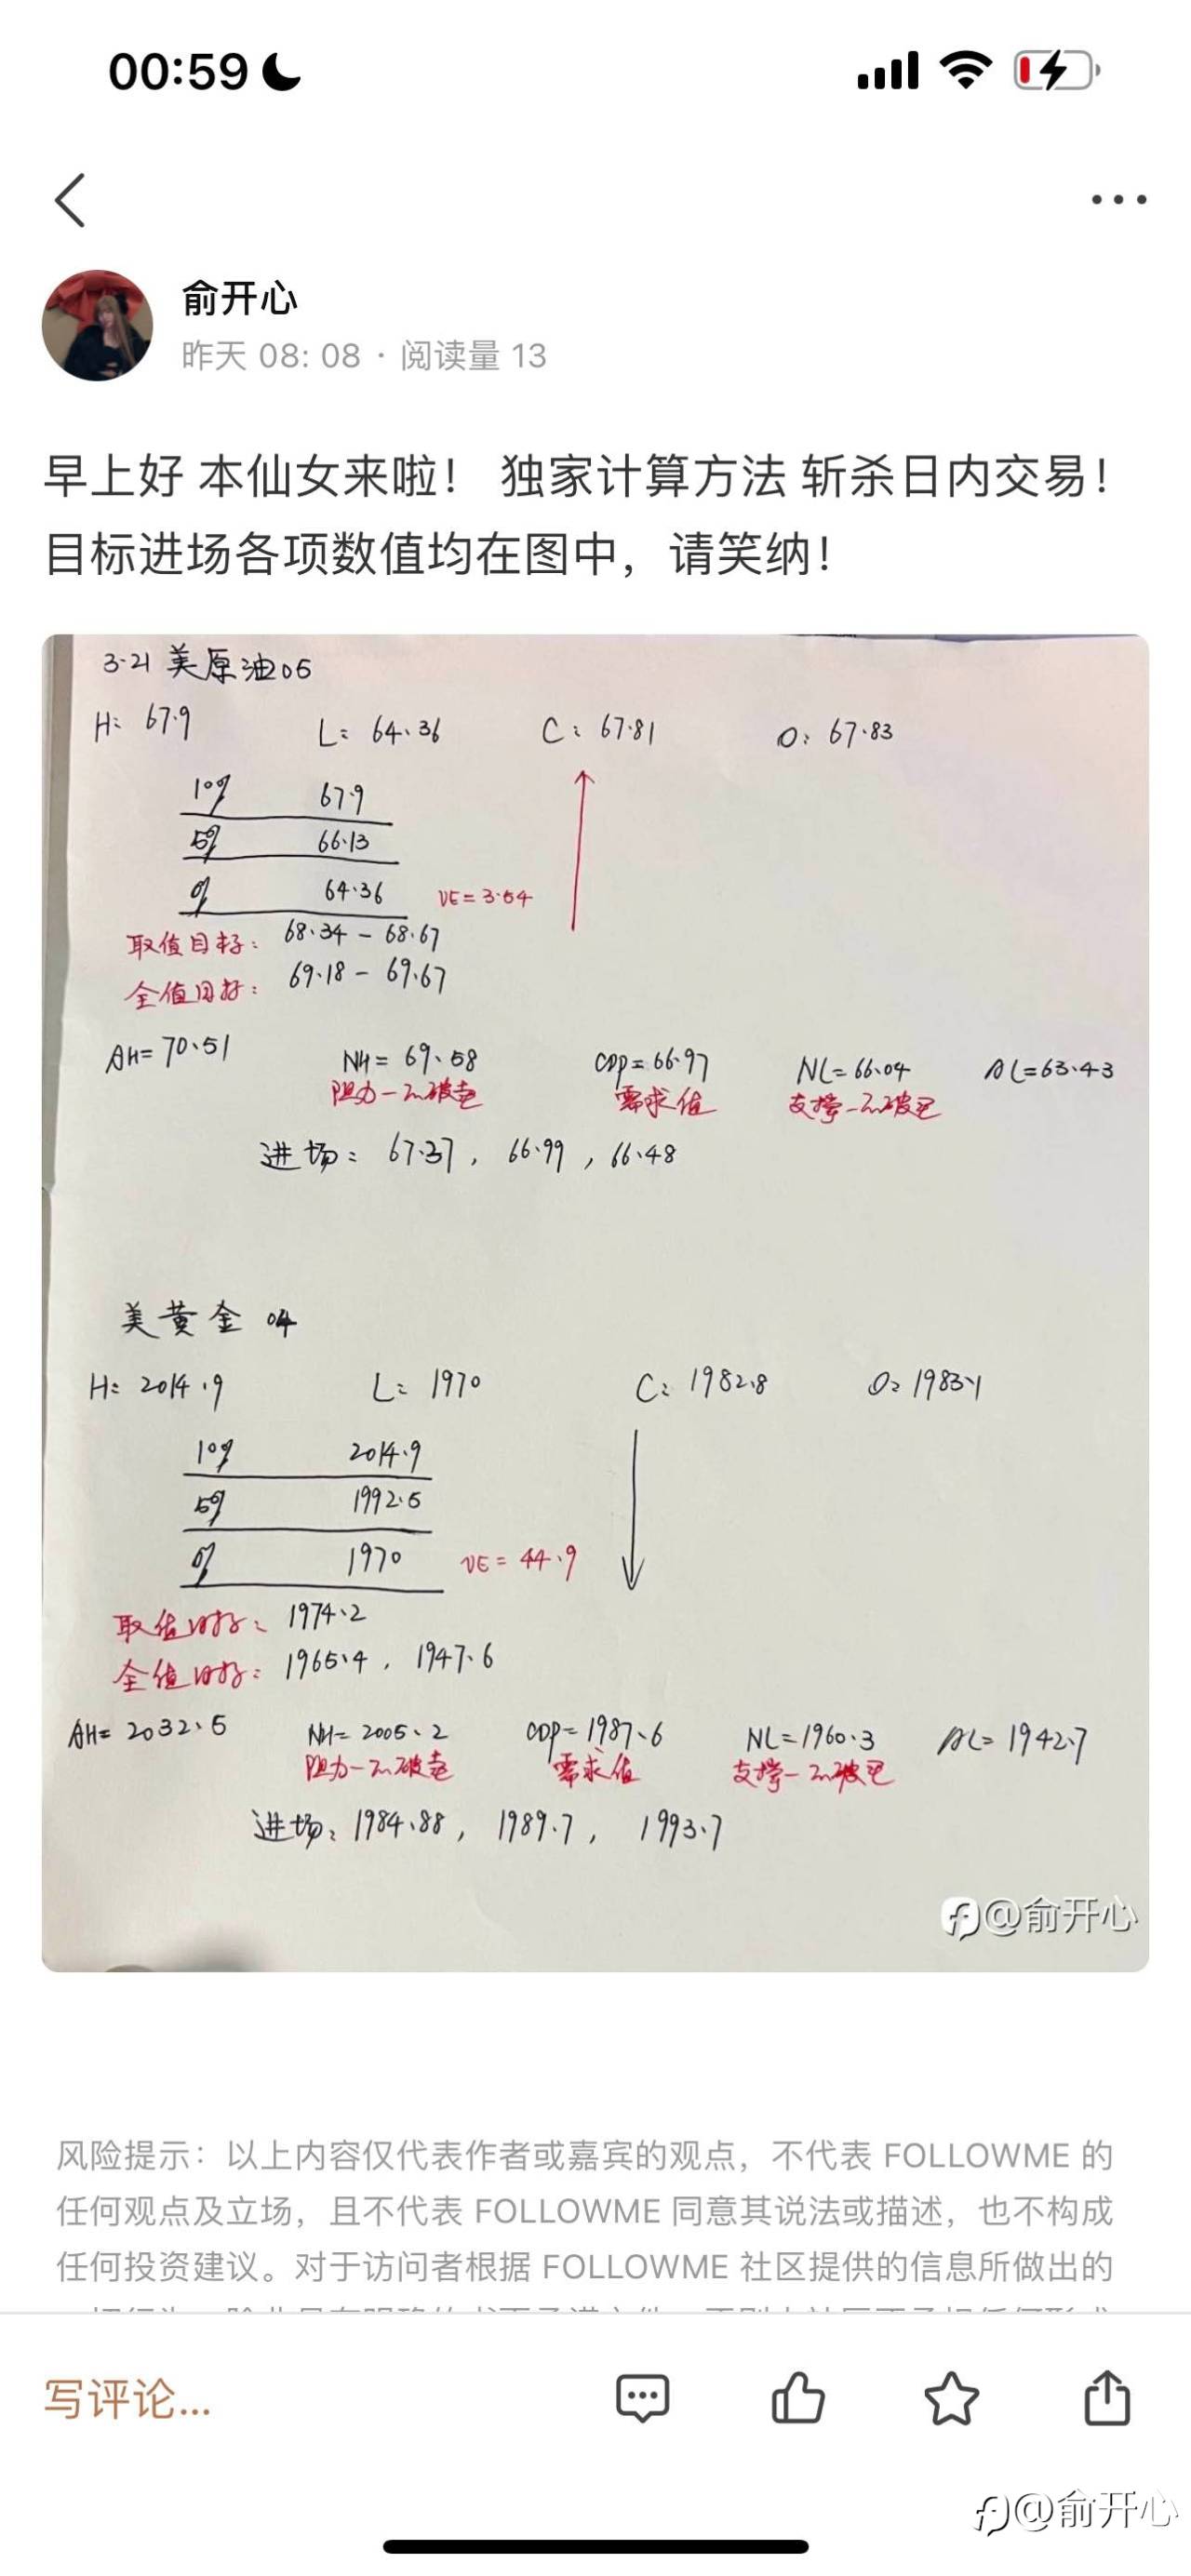 00:59
俞开心
昨天 08: 08 · 阅读量 13
早上好 本仙女来啦！ 独家计算方法 斩杀日内交易！
目标进场各项数值均在图中，请笑纳！
3-21 美原油05
H: 67.9 L: 64.36 C: 67.81 O: 67.83
67.9
66.13
64.36 VE=3.54
取值目标: 68.34 - 68.67
全值目标: 69.18 - 69.67
AH=70.51 NH=69.58 CDP=66.97 NL=66.04 AL=63.43
阻力一不破走 需求值 支撑一不破
进场: 67.37, 66.99, 66.48
美黄金 04
H: 2014.9 L: 1970 C: 1982.8 O: 1983.1
2014.9
1992.5
1970 VE=44.9
取值目标: 1974.2
全值目标: 1965.4, 1947.6
AH=2032.5 NH=2005.2 CDP=1987.6 NL=1960.3 AL=1942.7
阻力一不破走 需求值 支撑一不破
进场: 1984.88, 1989.7, 1993.7
@俞开心
风险提示：以上内容仅代表作者或嘉宾的观点，不代表 FOLLOWME 的
任何观点及立场，且不代表 FOLLOWME 同意其说法或描述，也不构成
任何投资建议。对于访问者根据 FOLLOWME 社区提供的信息所做出的
写评论...
@俞开心